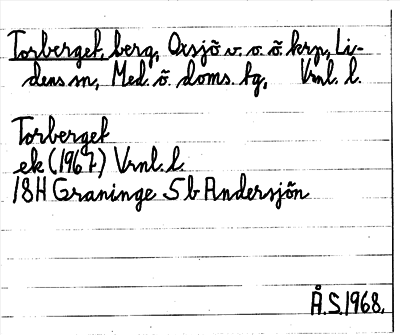 Torberget, berg, Oxsjö v. o. ö. krp, Li-
dens sn, Med. ö. doms. tg, Vrnl. l.
Torberget
ek (1967) Vrnl. l.
18H Graninge 5b Andersjön
Å.S. 1968.